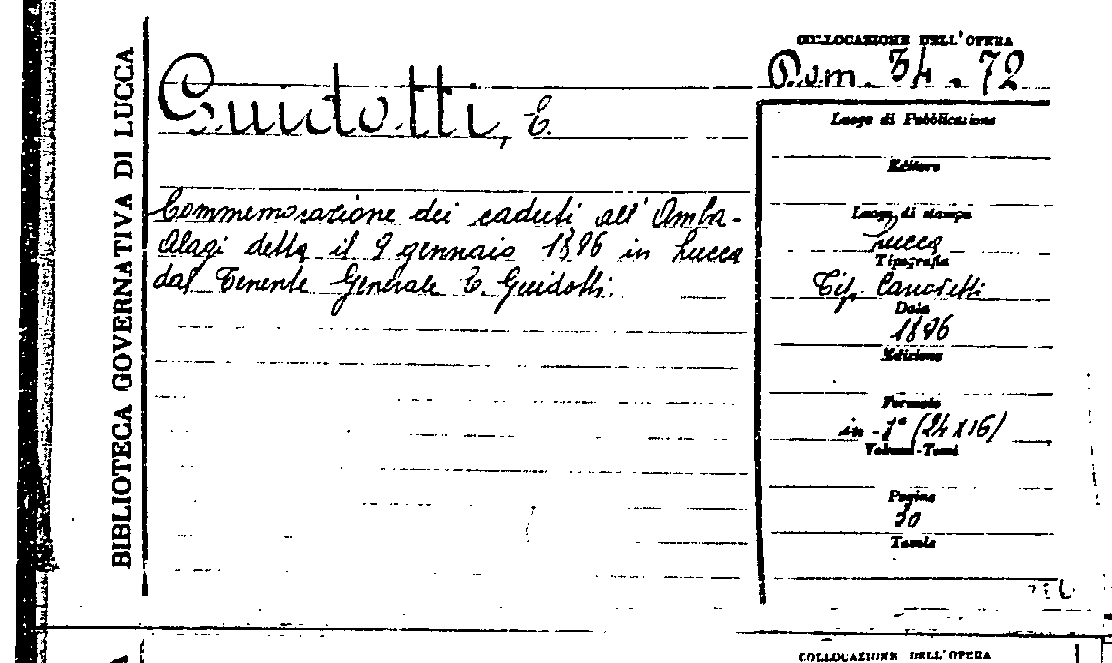 BIBLIOTECA GOVERNATIVA DI LUCCA
Guidotti, E.
Commemorazione dei caduti all' Amba-
Alagi detta il 9 gennaio 1896 in Lucca
dal Tenente Generale E. Guidotti.
COLLOCAZIONE DELL'OPERA
34.72
Luogo di Pubblicazione
Editore
Luogo di stampa
Lucca
Tipografia
Tip. Canovetti
Data
1896
Edizione
Formato
(24x16)
Volumi-Tomi
Pagine
30
Tavole
COLLOCAZIONE DELL'OPERA